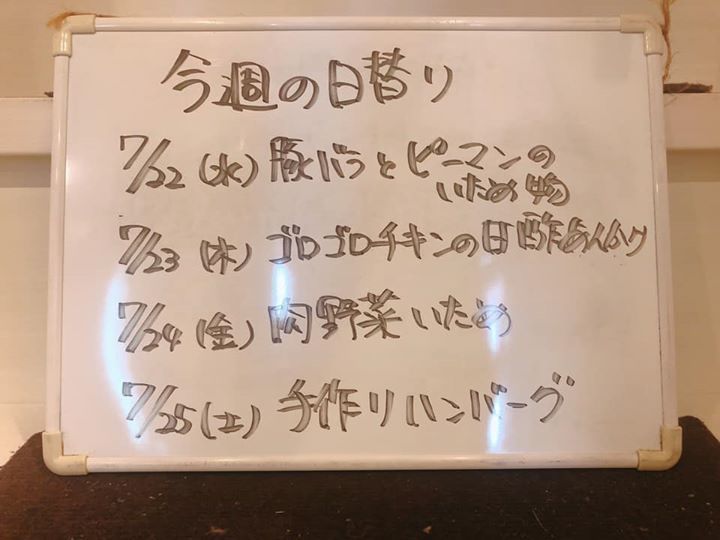 今週の日替り
7/22(水)豚バラとピーマンの
いため物
7/23(木)ゴロゴロチキンの甘酢あんかけ
7/24(金)肉野菜いため
7/25(土)手作りハンバーグ